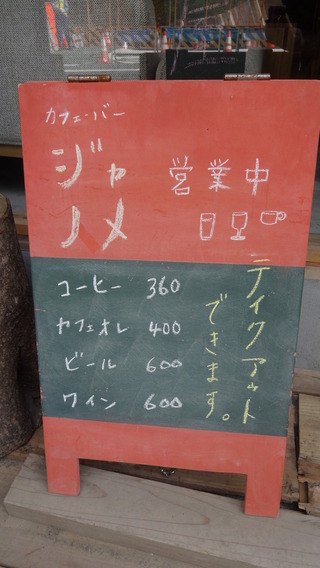 カフェ・バー
ジャ
ノメ
営業中
コーヒー 360
カフェオレ 400
ビール 600
ワイン 600
テイクアウト
できます。